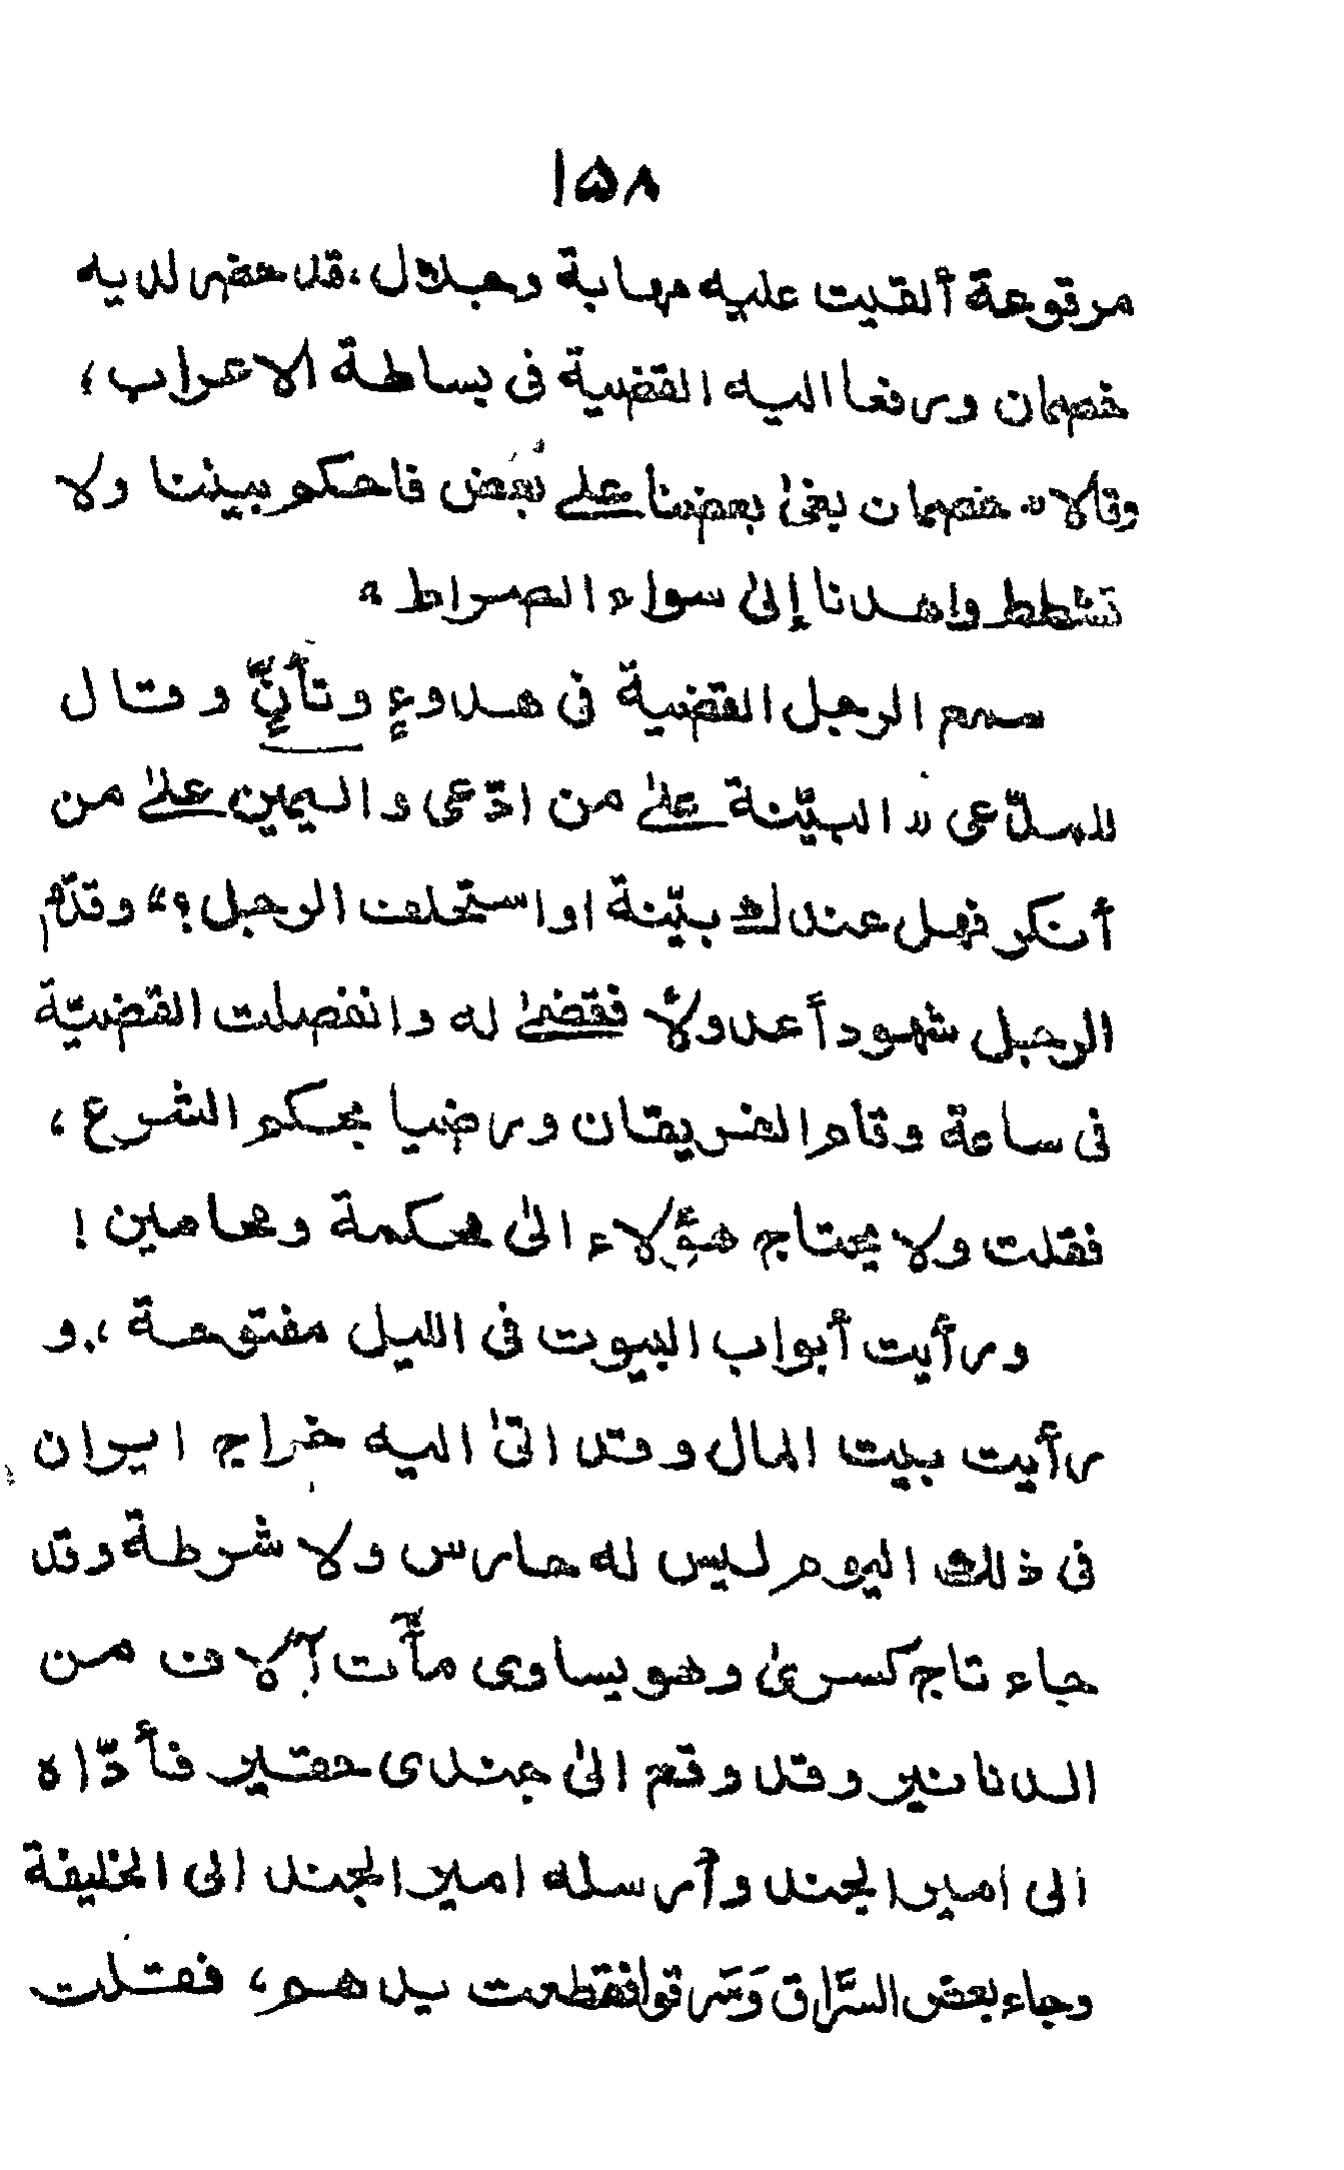 ۱۵۸
مرقوعة ألقيت عليه مهابة وجلال، قد حضر لديه
خصمان ورفعا اليه القضية فى بساطة الاعراب،
وقالا " خصمان بغىٰ بعضنا علے بعض فاحكم بيننا ولا
تشطط واهدنا إلىٰ سواء الصراط "
سمع الرجل القضية فى هدوءٍ وتأنٍّ وقال
للمدّعى " البيّنة علىٰ من ادّعى واليمين علىٰ من
أنكر فهل عندك بيّنة اواستحلف الرجل؟" وقدّم
الرجل شهوداً عدولاً فقضىٰ له وانفصلت القضيّة
فى ساعة وقام الفريقان ورضيا بحكم الشرع،
فقلت ولا يحتاج هؤلاء الىٰ محكمة ومحامين!
ورأيت أبواب البيوت فى الليل مفتوحة، و
رأيت بيت المال وقد اتىٰ اليه خراج ايران
فى ذلك اليوم ليس له حارس ولا شرطة وقد
جاء تاج كسرىٰ وهو يساوى مآت آلاف من
الدنانير وقد وقع الىٰ جندى حقير فأدّاه
الى امير الجند وأرسله امير الجند الى الخليفة
وجاء بعض السَّرّاق وَسَرقوا فقطعت يدهم، فقلت